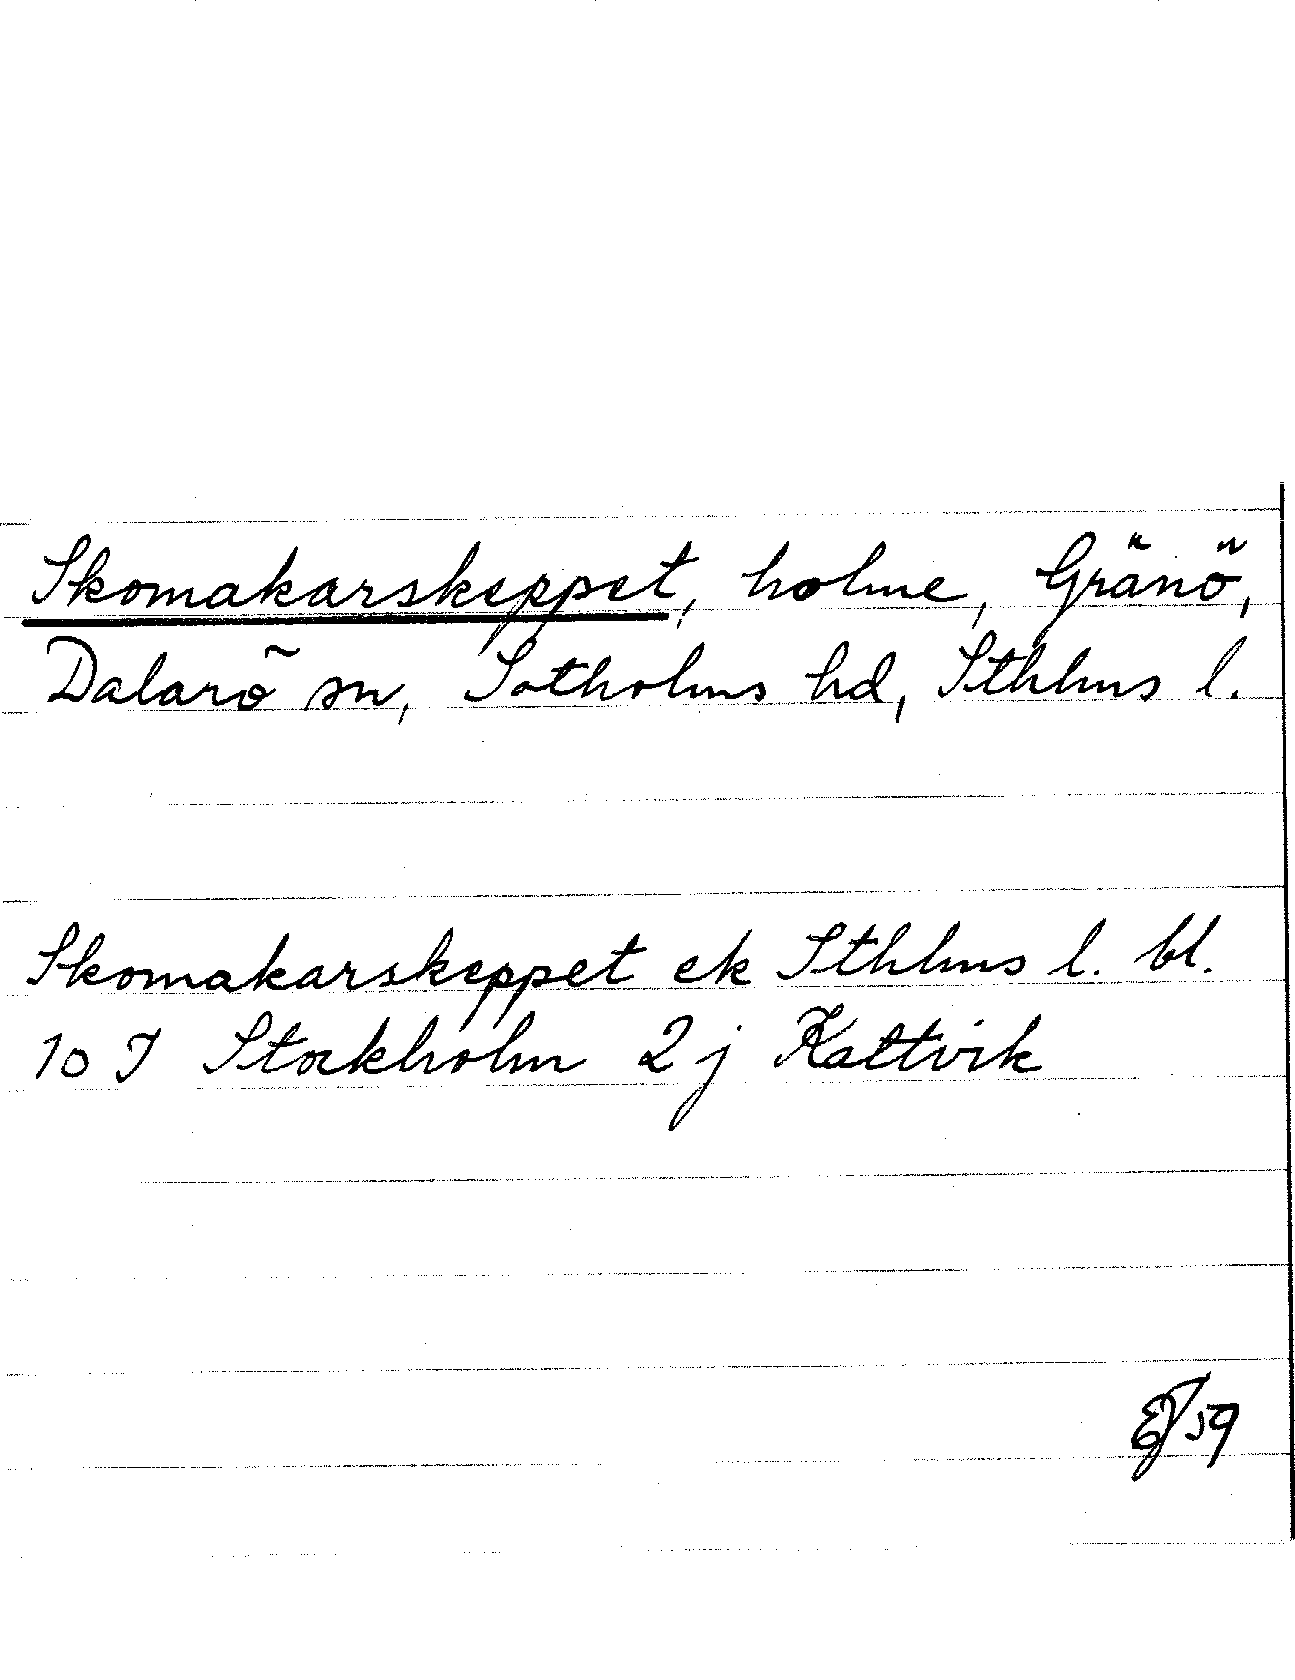 Skomakarskeppet, holme, Gränö,
Dalarö sn, Sotholms hd, Sthlms l.
Skomakarskeppet ek Sthlms l. bl.
10 I Stockholm 2 j Kattvik
59